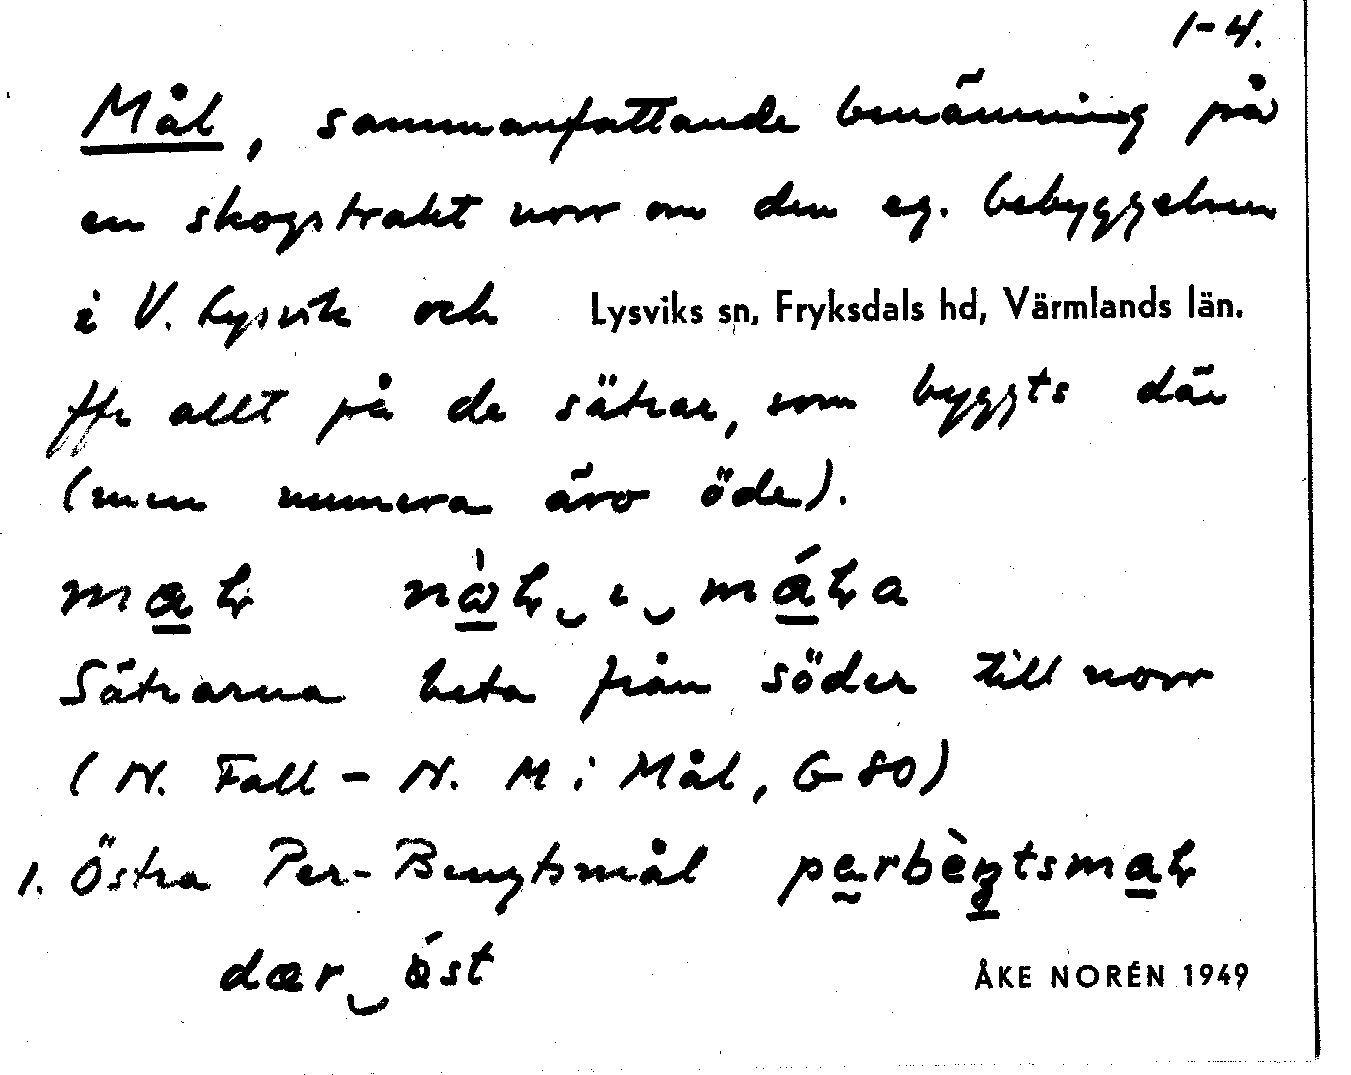 1-4.
Mål, sammanfattande benämning på
en skogstrakt norr om den eg. bebyggelsen
i V. Lysvik och Lysviks sn, Fryksdals hd, Värmlands län.
ffr allt på de sätrar, som byggts där
(men numera äro öde).
Sätrarna heta från söder till norr
(N. Fall - N. M i Mål, G 80)
1. Östra Per-Bengtsmål
ÅKE NORÉN 1949